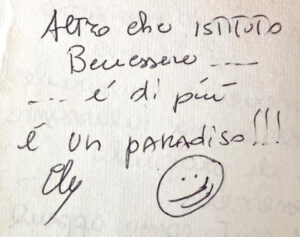 Altro che ISTITUTO
Benessere ----
---- é di più
é un paradiso!!!
Ely